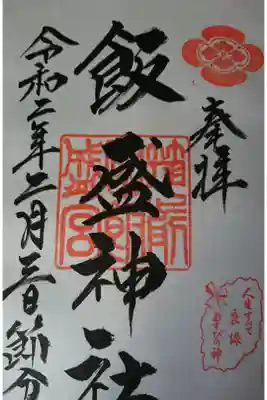 奉拝
飯盛神社
令和二年二月三日 節分
人生すべて
良縁
むすびの神